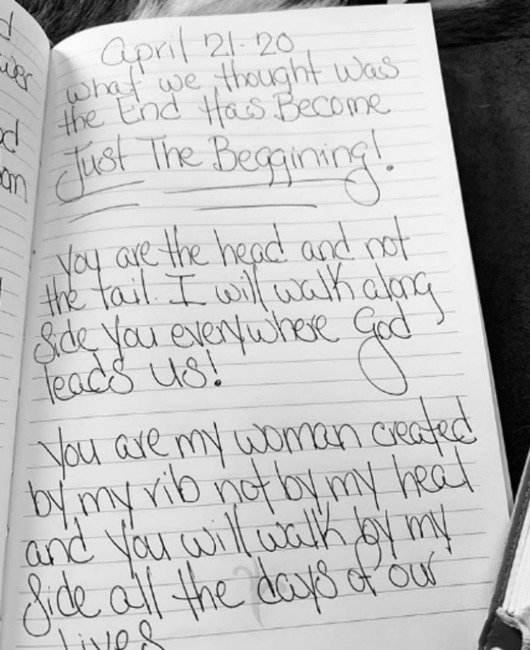 April 21-20
what we thought Was
the End Has Become
Just The Beggining!
You are the head and not
the tail. I will walk along
Side you everywhere God
leads us!
You are my woman created
by my rib not by my heal
and you will walk by my
Side all the days of our
lives